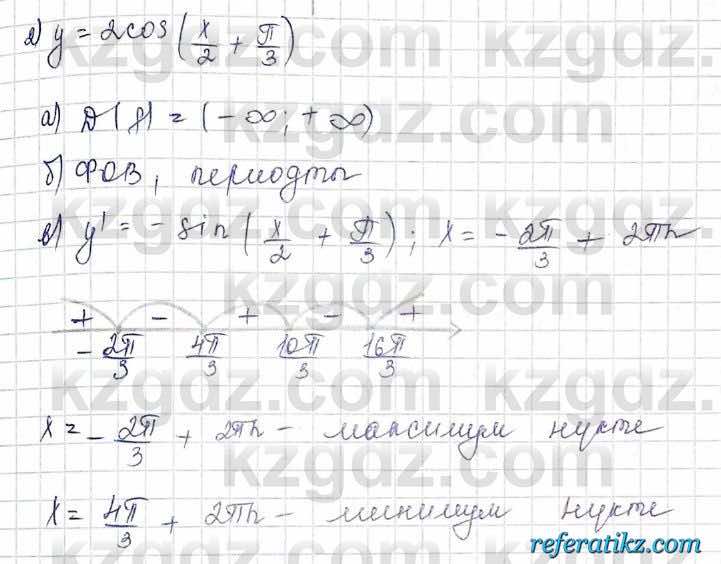 д) y = 2cos(x/2 + π/3)
а) D(f) = (-∞; +∞)
б) ФОВ, периодты
в) y' = - sin(x/2 + π/3); x = - 2π/3 + 2πn
+ - + - +
- 2π/3 4π/3 10π/3 16π/3
x = - 2π/3 + 2πn - максимум нүкте
x = 4π/3 + 2πn - минимум нүкте
kzgdz.com
referatikz.com